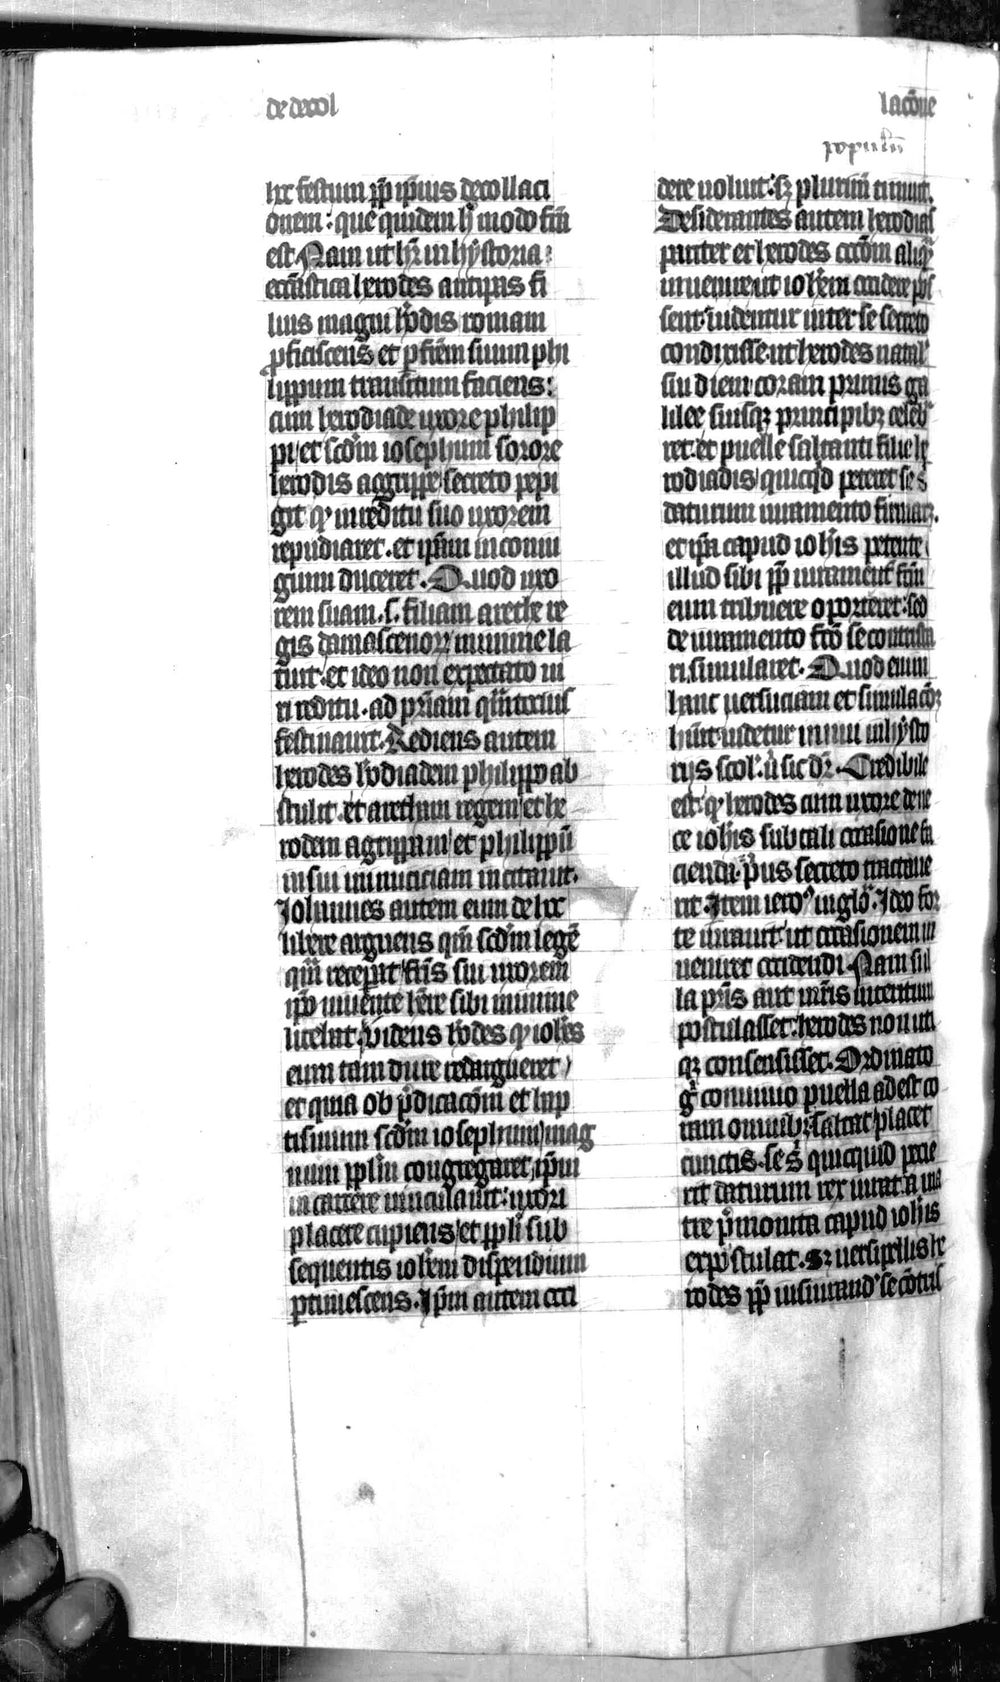 de decol
lacōne
populū
hꝫ festum ꝓp̄ ip̄ius decollaci
onem: que quidem hͦ modo fc̄a
est. Nam ut hr̄ in hystoria
ecc̄astica herodes antipas fi
lius magni h̓odis romam
ꝓficiscens et ꝑ fr̄em suum phi
lippum transitum faciens:
cum herodiade uxore philip
pi et scd̄m iosephum sorore
herodis agrippe secreto pepi
git ꝙ in reditu suo uxorem
repudiaret. et ip̄am in coniu
gium duceret. Quod uxo
rem suam. s. filiam arethe re
gis damascenorꝝ minime la
tuit. et ideo non expectato ui
ri reditu. ad pr̄iam
festinauit. Rediens autem
herodes h̓odiadem philippo ab
stulit. et aretham regem et he
rodem agrippam et philippū
in sui inimiciciam incitauit.
Johannes autem eum de hꝫ
libere arguens qm̄ scd̄m legē
qm̄ fr̄is sui uxorem
ip̄o uiuente hr̄e sibi minime
licebat. videns h̓odes ꝙ ioh̄es
eum tam dure redargueret
et quia ob p̄dicac̄om et bap
tismum scd̄m iosephum mag
num ppl̄m congregaret ip̄m
in carcere uinculauit: uxori
placere cupiens et ppl̄i sub
sequentis ioh̄em dispendium
ꝑtimescens. Ip̄m autem occi
dere uoluit: sꝫ plurimū timuit.
Desiderantes autem herodias
pariter et herodes occ̄om aliqͣ
inuenire ut ioh̄em occidere pos
sent. uidentur inter se secreto
condixisse. ut herodes natal̓
sui diem coram primis ga
lilee suisqꝫ principibꝫ celeb̓
ret. et puelle saltanti filie he
rodiadis quicqͥd peteret se s̓
daturum iuramento firmaret.
et ip̄a capud ioh̄is petente
illud sibi ꝓp̄ iurament̄ fc̄m
eum tribuere oporteret: sed
de iuramento fc̄o se contrista
ri simularet. Quod enim
hanc uersuciam et simulac̄oꝫ
hūit uidetur inui in hysto
rijs scol̓. ū sic dr̄. Credibile
est. ꝙ herodes cum uxore de ne
ce ioh̄is sub tali occasione fa
cienda. p̓us secreto tractaue
rit. Item iero⁹ in glo̓. Ideo for
te iurauit. ut occasionem in
ueniret occidendi. Nam si il
la pr̄is aut mr̄is interitum
postulasset. herodes non uti
qꝫ consensisset. Ordinato
gͦ conuiuio puella adest co
ram omnibꝫ. saltat placet
cunctis. se s̓ quicquid pecie
rit daturum rex iurat. a ma
tre p̄monita capud ioh̄is
expostulat. Sꝫ uersipellis he
rodes ꝓp̄ iusiurand̓ se cōtris